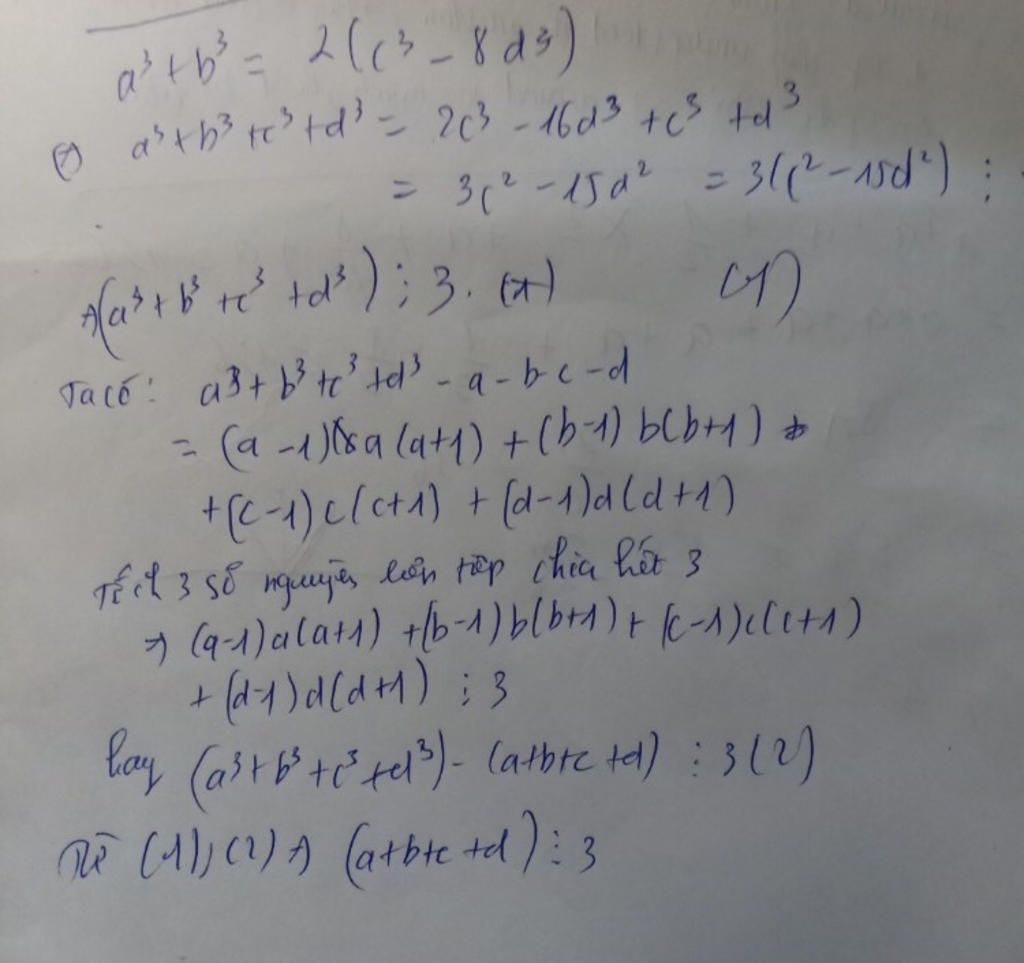 a³ + b³ = 2(c³ - 8d³)
⇔ a³ + b³ + c³ + d³ = 2c³ - 16d³ + c³ + d³
= 3c² - 15d² = 3(c² - 15d²) ⋮
⇒ (a³ + b³ + c³ + d³) ⋮ 3. (1)
Ta có: a³ + b³ + c³ + d³ - a - b - c - d
= (a - 1) a (a+1) + (b-1) b(b+1)
+ (c-1) c(c+1) + (d-1)d(d+1)
Tích 3 số nguyên liên tiếp chia hết 3
⇒ (a-1)a(a+1) + (b-1)b(b+1) + (c-1)c(c+1)
+ (d-1)d(d+1) ⋮ 3
hay (a³+b³+c³+d³) - (a+b+c+d) ⋮ 3 (2)
Từ (1), (2) ⇒ (a+b+c+d) ⋮ 3